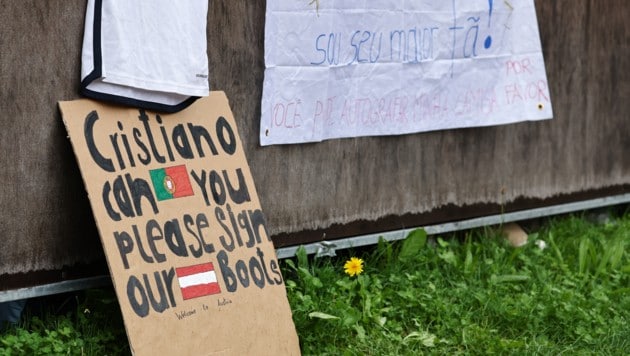 seu maior fã!
VOCE AUTOGRAFAR MINHA CAMISA POR
FAVOR
Cristiano
can YOU
please sign
our Boots
Welcome to Austria